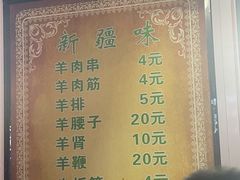 新疆味
羊肉串 4元
羊肉筋 4元
羊排 5元
羊腰子 20元
羊肾 10元
羊鞭 20元
4元